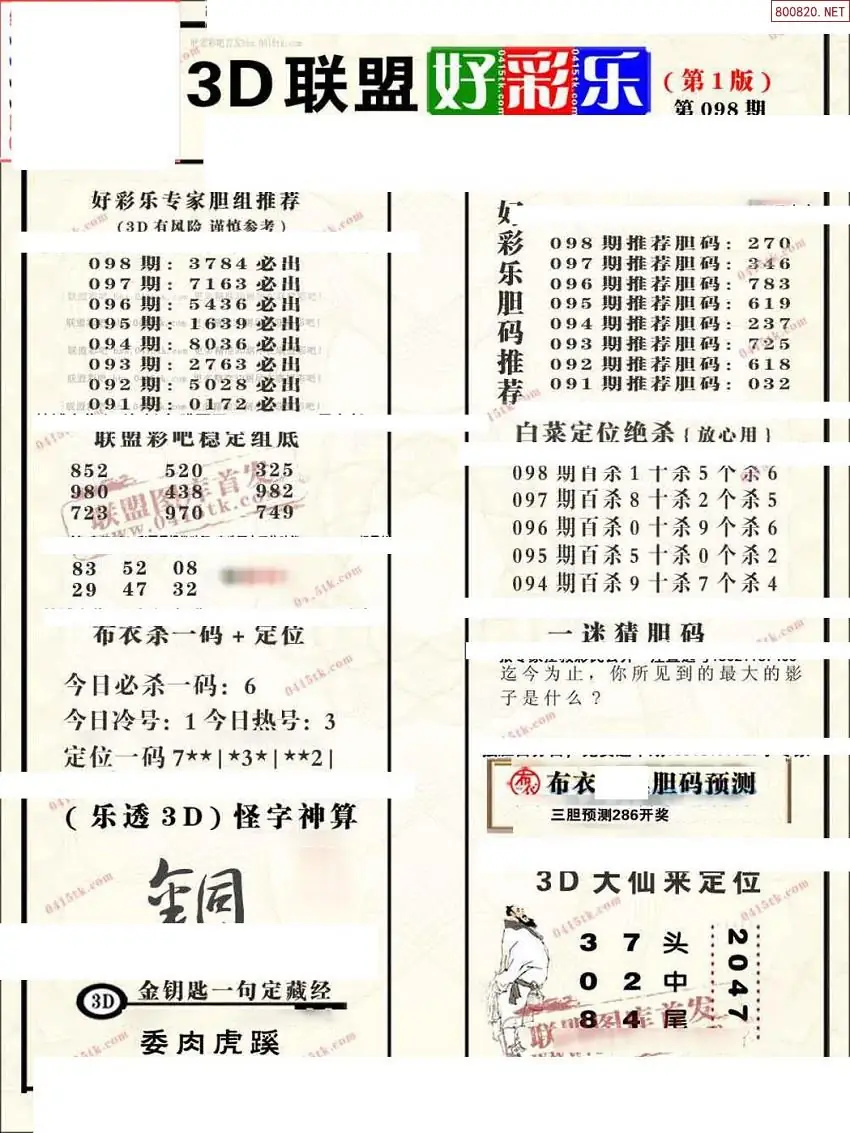 800820.NET
3D联盟好彩乐(第1版)
第098期
好彩乐专家胆组推荐
(3D有风险 谨慎参考)
098期: 3784必出
097期: 7163必出
096期: 5436必出
095期: 1639必出
094期: 8036必出
093期: 2763必出
092期: 5028必出
091期: 0172必出
联盟彩吧稳定组底
852 520 325
980 438 982
723 970 749
83 52 08
29 47 32
布衣杀一码+定位
今日必杀一码: 6
今日冷号: 1 今日热号: 3
定位一码 7**|*3*|**2|
(乐透3D)怪字神算
銅
3D 金钥匙一句定藏经
委肉虎蹊
好彩乐胆码推荐
098期推荐胆码: 270
097期推荐胆码: 346
096期推荐胆码: 783
095期推荐胆码: 619
094期推荐胆码: 237
093期推荐胆码: 725
092期推荐胆码: 618
091期推荐胆码: 032
白菜定位绝杀{放心用}
098期百杀1十杀5个杀6
097期百杀8十杀2个杀5
096期百杀0十杀9个杀6
095期百杀5十杀0个杀2
094期百杀9十杀7个杀4
一迷猜胆码
迄今为止，你所见到的最大的影
子是什么?
布衣 布衣 胆码预测
三胆预测286开奖
3D大仙来定位
3 7 头
0 2 中
8 4 尾
2047
联盟图库首发
www.0415tk.com
0415tk.com